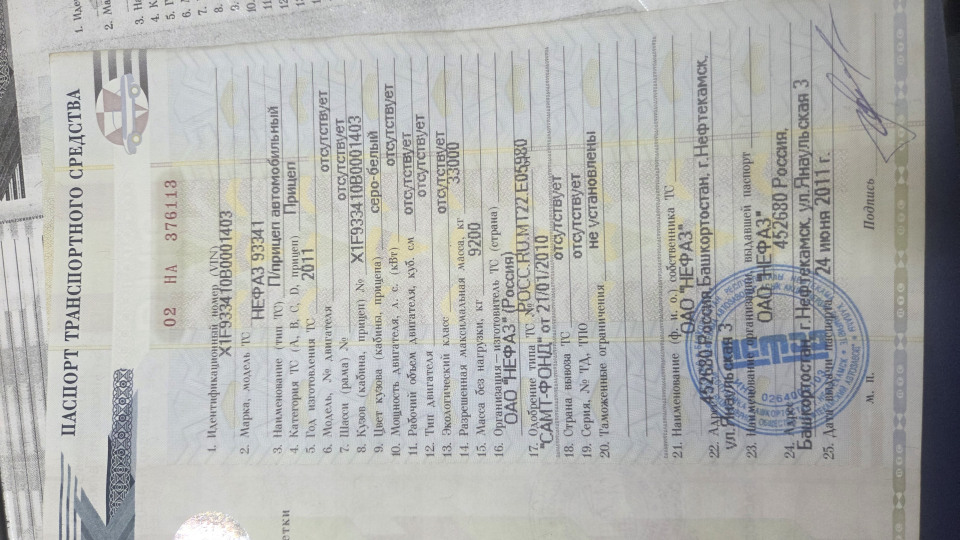 ПАСПОРТ ТРАНСПОРТНОГО СРЕДСТВА
02 НА 376113
1. Идентификационный номер (VIN)
X1F933410B0001403
2. Марка, модель ТС
НЕФАЗ 93341
3. Наименование (тип ТС) П/прицеп автомобильный
4. Категория ТС (A, B, C, D, прицеп) Прицеп
5. Год изготовления ТС 2011
6. Модель, № двигателя отсутствует
7. Шасси (рама) № отсутствует
8. Кузов (кабина, прицеп) № X1F933410B0001403
9. Цвет кузова (кабины, прицепа) серо-белый
10. Мощность двигателя, л. с. (кВт) отсутствует
11. Рабочий объем двигателя, куб. см отсутствует
12. Тип двигателя отсутствует
13. Экологический класс отсутствует
14. Разрешенная максимальная масса, кг 33000
15. Масса без нагрузки, кг 9200
16. Организация – изготовитель ТС (страна)
ОАО "НЕФАЗ" (Россия)
17. Одобрение типа ТС № РОСС.RU.МТ22.Е05980
"САМТ-ФОНД" от 21/01/2010
18. Страна вывоза ТС отсутствует
19. Серия, № ТД, ТПО отсутствует
20. Таможенные ограничения не установлены
21. Наименование (ф. и. о.) собственника ТС
ОАО "НЕФАЗ"
22. 452680 Россия, Башкортостан, г.Нефтекамск,
ул.Янаульская 3
23. Наименование организации, выдавшей паспорт
ОАО "НЕФАЗ"
24. Адрес 452680 Россия,
Башкортостан, г.Нефтекамск, ул.Янаульская 3
25. Дата выдачи паспорта 24 июня 2011 г.
М. П. Подпись